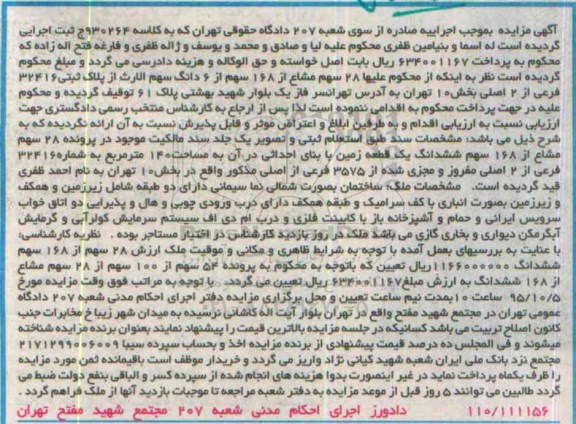 آگهی مزایده بموجب اجراییه صادره از سوی شعبه ۲۰۷ دادگاه حقوقی تهران که به کلاسه ۹۳۰۲۶۴ج ثبت اجرایی
گردیده است له اسما و بنیامین ظفری محکوم علیه لیا و صادق و محمد و یوسف و ژاله ظفری و فارغه فتح اله زاده که
محکوم به پرداخت ۶۳۴۰۰۱۱۶۷ ریال بابت اصل خواسته و حق الوکاله و هزینه دادرسی می گردد و مبلغ محکوم
گردیده است نظر به اینکه از محکوم علیها ۲۸ سهم مشاع از ۱۶۸ سهم از ۶ دانگ سهم الارث از پلاک ثبتی۳۲۴۱۶
فرعی از ۲ اصلی بخش۱۰ تهران به آدرس تهرانسر فاز یک بلوار شهید بهشتی پلاک ۶۱ توقیف گردیده و محکوم
علیه در جهت پرداخت محکوم به اقدامی ننموده است لذا پس از ارجاع به کارشناس منتخب رسمی دادگستری جهت
ارزیابی نسبت به ارزیابی اقدام و به طرفین ابلاغ و اعتراض موثر و قابل پذیرش نسبت به آن ارائه نگردیده که به
شرح ذیل می باشد: مشخصات سند طبق استعلام ثبتی و تصویر یک جلد سند مالکیت موجود در پرونده ۲۸ سهم
مشاع از ۱۶۸ سهم ششدانگ یک قطعه زمین با بنای احداثی در آن به مساحت۱۴۰ مترمربع به شماره۳۲۴۱۶
فرعی از ۲ اصلی مفروز و مجزی شده از ۳۵۷۵ فرعی از اصلی مذکور واقع در بخش۱۰ تهران به نام احمد ظفری
قید گردیده است. مشخصات ملک: ساختمان بصورت شمالی نما سیمانی دارای دو طبقه شامل زیرزمین و همکف
و زیرزمین بصورت انباری با کف سرامیک و طبقه همکف دارای درب ورودی چوبی و هال و پذیرایی دو اتاق خواب
سرویس ایرانی و حمام و آشپزخانه باز با کابینت فلزی و درب ام دی اف سیستم سرمایش کولرآبی و گرمایش
آبگرمکن دیواری و بخاری گازی می باشد ملک در روز بازدید کارشناس در اختیار مستاجر بوده . نظریه کارشناسی:
با عنایت به بررسیهای بعمل آمده با توجه به شرایط ظاهری و مکانی و موقعیت ملک ارزش ۲۸ سهم از ۱۶۸ سهم
ششدانگ ۱۱۶۶۰۰۰۰۰۰ریال تعیین که باتوجه به محکوم به پرونده ۵۴ سهم از ۱۰۰ سهم از ۲۸ سهم مشاع
از ۱۶۸ ششدانگ به ارزش مبلغ۶۳۴۰۰۱۱۶۷ریال تعیین می گردد. با توجه به مراتب فوق وقت مزایده مورخ
۹۵/۱۰/۵ ساعت ۱۰بمدت نیم ساعت تعیین و محل برگزاری مزایده دفتر اجرای احکام مدنی شعبه ۲۰۷ دادگاه
عمومی تهران در مجتمع شهید مفتح واقع در تهران بلوار آیت اله کاشانی نرسیده به میدان شهر زیبا خ مخابرات جنب
کانون اصلاح تربیت می باشد کسانیکه در جلسه مزایده بالاترین قیمت را پیشنهاد نمایند بعنوان برنده مزایده شناخته
میشوند و فی المجلس ده درصد قیمت پیشنهادی از برنده مزایده اخذ و بحساب سپرده سیبا ۲۱۷۱۲۹۹۰۰۶۰۰۹
مجتمع نزد بانک ملی ایران شعبه شهید کیانی نژاد واریز می گردد و خریدار موظف است باقیمانده ثمن مورد مزایده
را ظرف یکماه پرداخت نماید در غیر اینصورت بدوا هزینه های انجام شده از سپرده کسر و الباقی بنفع دولت ضبط می
گردد طالبین می توانند ۵ روز قبل از موعد مزایده به دفتر شعبه مراجعه تا موجبات بازدید آنها از ملک فراهم گردد .
۱۱۰/۱۱۱۱۵۶ دادورز اجرای احکام مدنی شعبه ۲۰۷ مجتمع شهید مفتح تهران